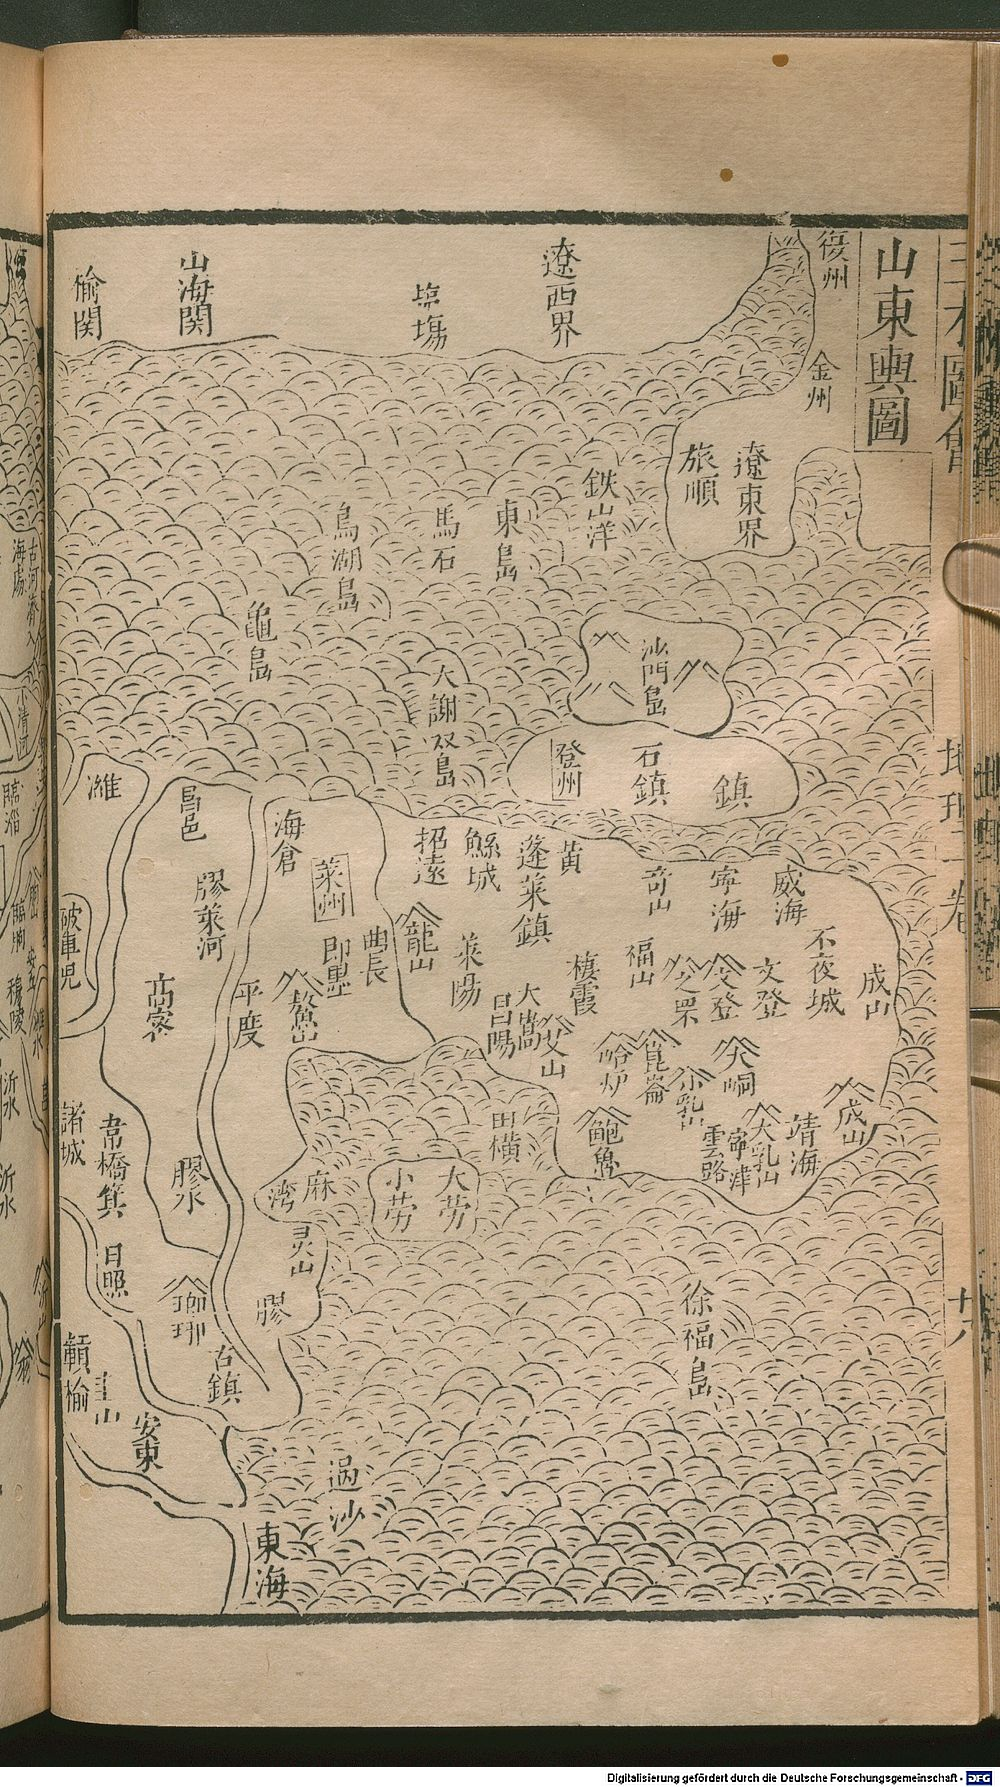 山東輿圖
三才圖會
地理一卷
復州
金州
遼東界
旅順
遼西界
塩塲
山海関
榆関
鉄山洋
東島
馬石
烏湖島
龜島
沙門島
大謝
双島
登州
石鎮
鎮
威海
寧海
奇山
黃
蓬萊鎮
招遠
海倉
萊州
昌邑
濰
膠萊河
成山
不夜城
文登
文登
之罘
福山
棲霞
萊陽
龍山
即墨
平度
高密
大嵩
昌陽
崑崙
小乳山
成山
靖海
大乳山
寧津
雲路
田橫
大劳
小劳
麻
湾
灵山
膠
膠水
諸城
日照
古鎮
安東
徐福島
東海
臨淄
穆陵
沂水
沂水
Digitalisierung gefördert durch die Deutsche Forschungsgemeinschaft - DFG